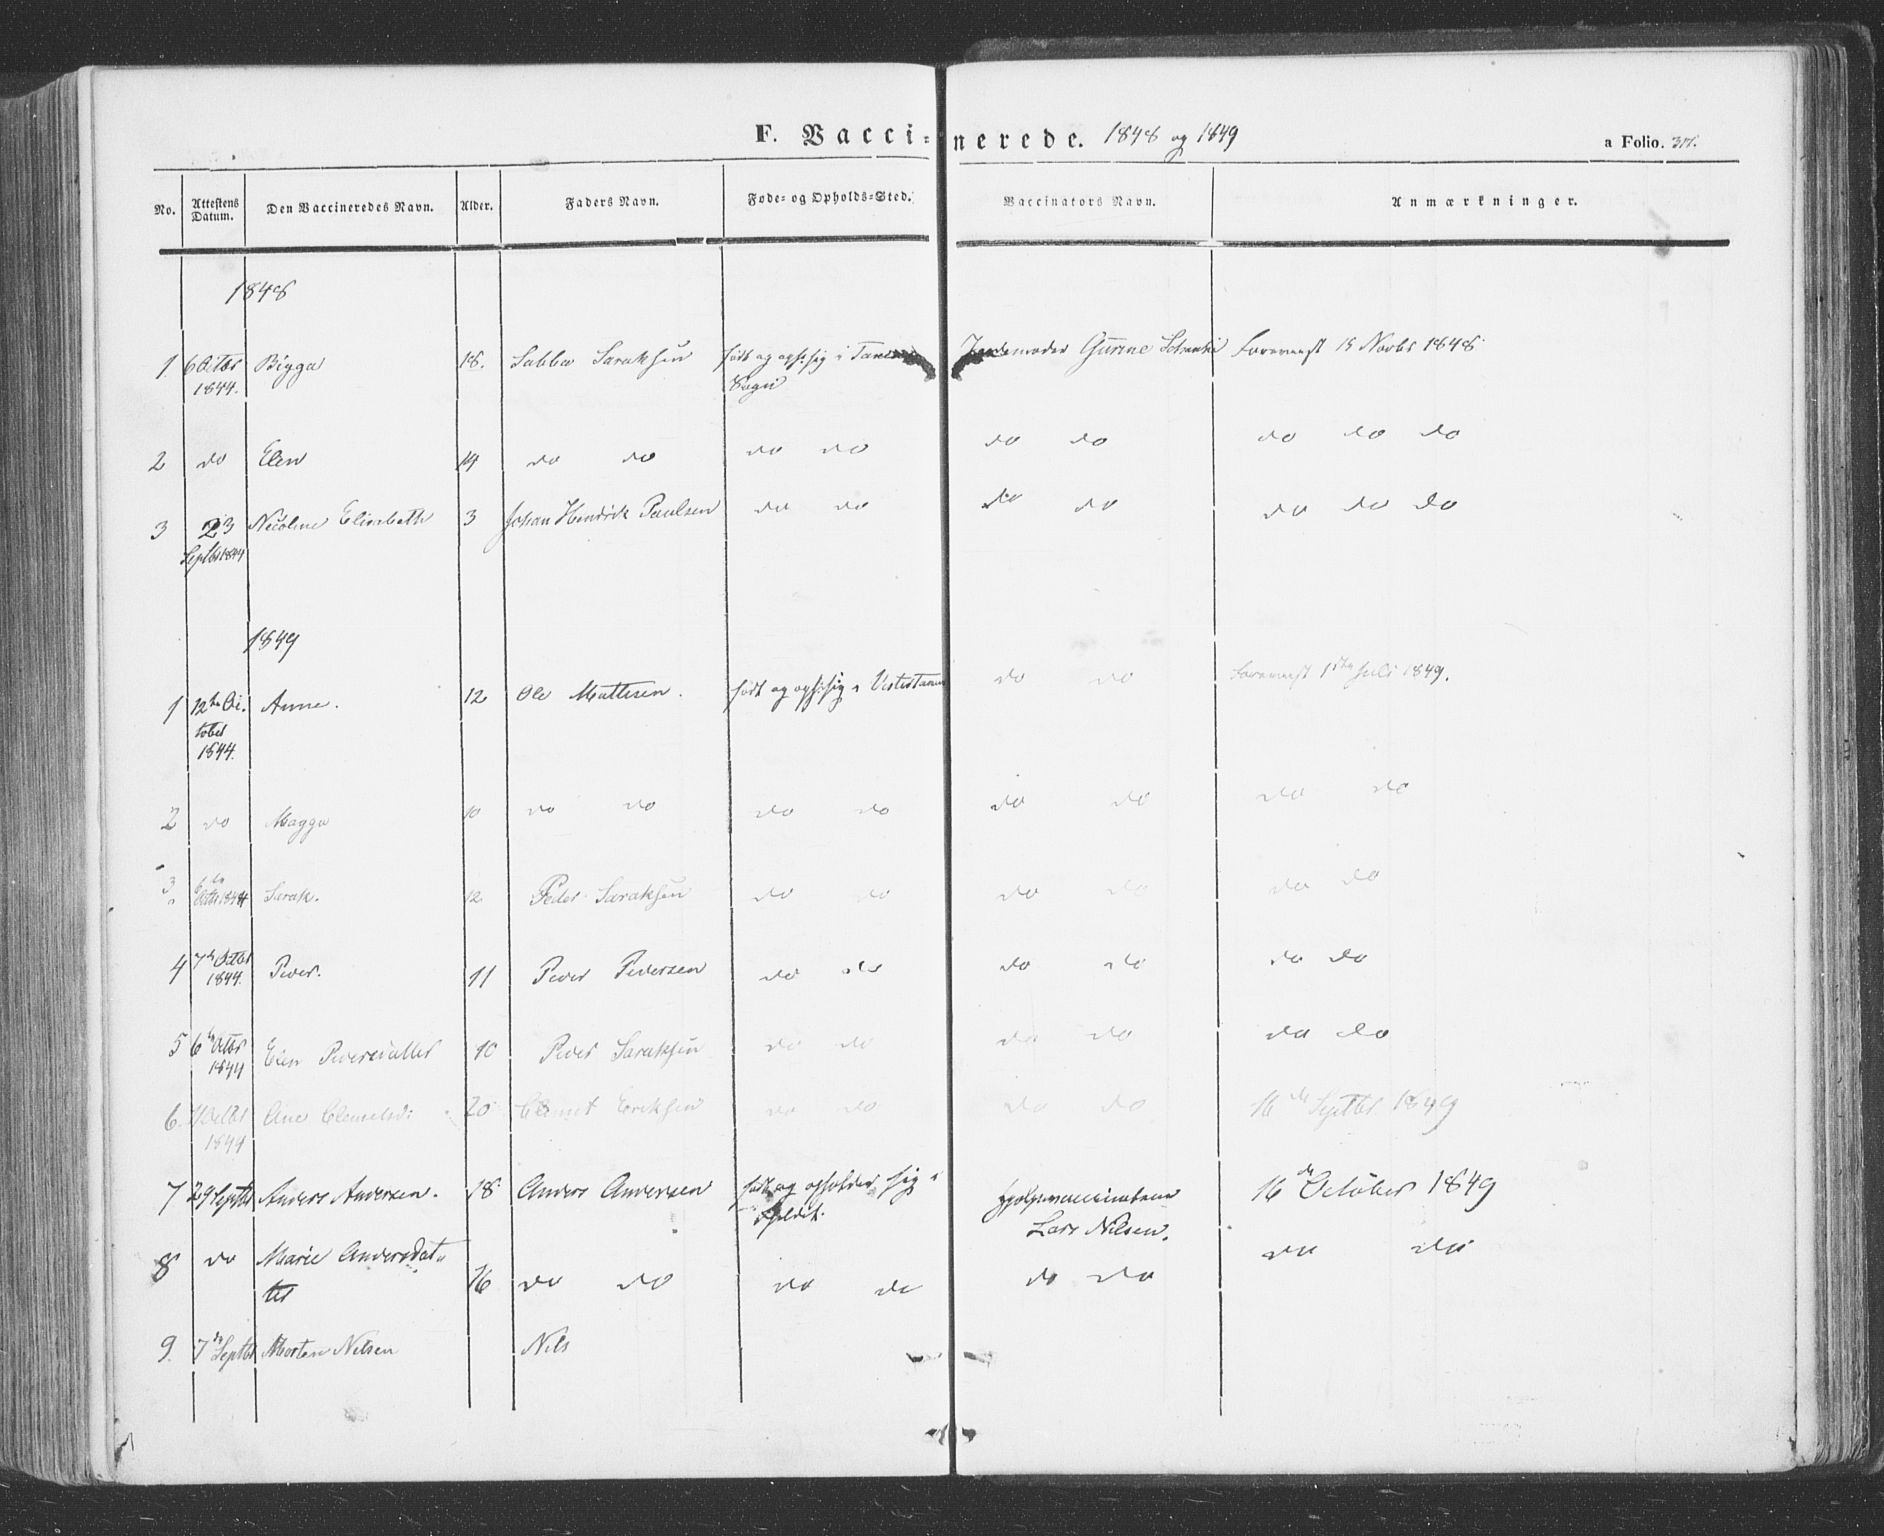 F. Vaccinerede. 1848 og 1849
a Folio.
No. Attestens Datum. Den Vaccineredes Navn. Alder. Faders Navn. Føde- og Opholds-Sted. Vaccinators Navn. Anmærkninger.
1848
1. 6 Octbr 1844. Bigga 18. Sabba Saraksen født og oph. sig i Sogn Jordemoder Gurine Forevenst 18 Novbr 1848
2 do Elen 14 do do do do do do do do do
3 23 Septbr 1844 Nicoline Elisabeth 3 Johan Hendrik Paulsen do do do do do do do
1849
1 12te October 1844. Anne. 12 Ole Mathisen. født og oph. sig i Vestertanen do do Forevenst 1ste Juli 1849.
2 do Magga 10 do do do do do do do do
3 6te Octbr 1844 Sarak. 12. Peder Saraksen do do do do do do
4 7de Octbr 1844. Peder. 11 Peder Pedersen do do do do do do
5 6te Octbr 1844 Elen Pedersdatter 10 Peder Saraksen do do do do do do
6. Octbr 1844 Ane Clemetsd: 20 Clemet Eriksen do do do do 16de Septbr 1849
7 29 Septbr Anders Andersen. 18 Anders Andersen født og opholder sig i Lars Nilsen. 16de October 1849
8 do Marie Andersdatter 16 do do do do do do do do
9. 7de Septbr Morten Nilsen Nils